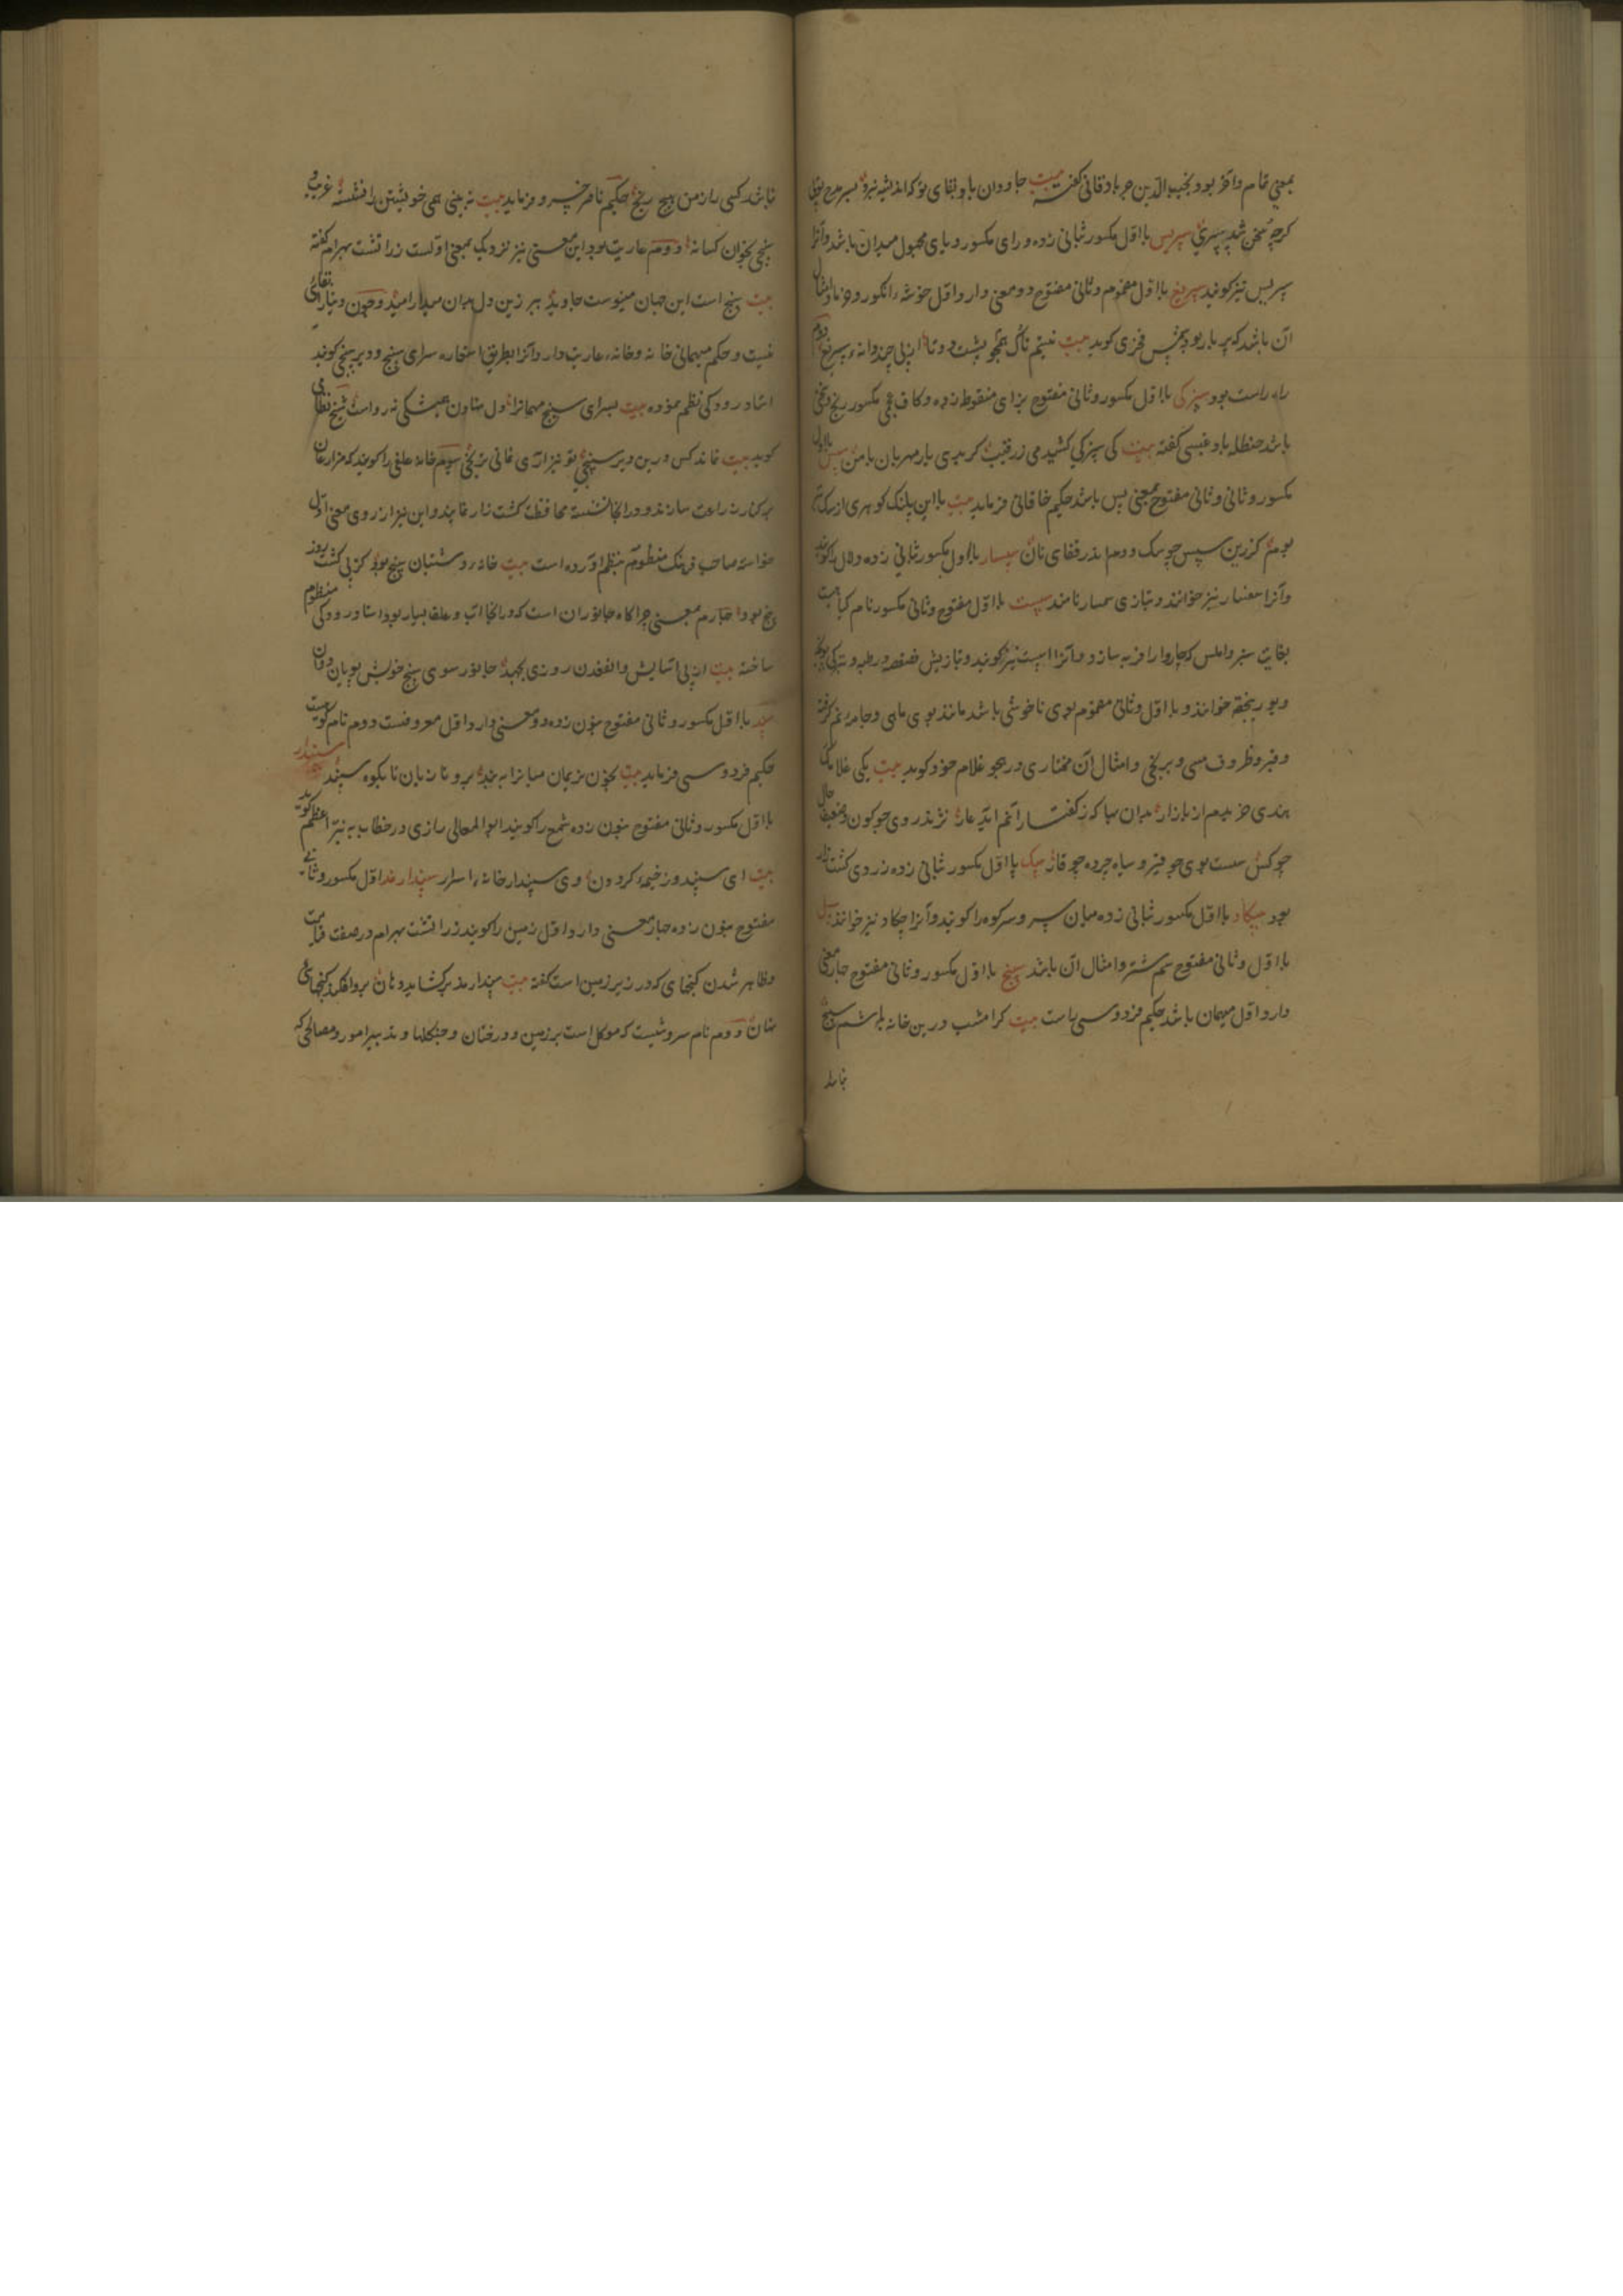 بمعنی تمام و آخر بود نجیب الدین جرباذقانی گفته بیت جاودان باد بقای تو که اندیشه نبرد بسر مدح
گرچه سخن شد سپری سپریس با اول مکسور بثانی زده و رای مکسور و یای مجهول میدان باشد و آنرا
سپریس نیز گویند سپریغ با اول مضموم و ثانی مفتوح دو معنی دارد اول خوشه انگور و خرما و امثال
آن باشد که پر بار بود شمس فخری گوید بیت پشت دوتا از پی چند دانه سپریغ دوم
راه راست بود سپزکی با اول مکسور و ثانی مفتوح بزای منقوط زده و کاف عجمی مکسور رنج و سختی
باشد حنظله بادغیسی گفته بیت کی سپزکی کشیدمی ز رقیب گر بدی یار مهربان با من سپس با اول
مکسور و ثانی و ثانی مفتوح بمعنی پس باشد حکیم خاقانی فرماید بیت با این پلنک کوهری از سک بتر
بودم کزین سپس چو سک دوم اندر قفای نان سپسار با اول مکسور بثانی زده دلال را گویند
و آنرا سفسار نیز خوانند و بتازی سمسار نامند سپست با اول مفتوح و ثانی مکسور نام گیاهیست
بغایت سبز و املس که چاروا را فربه سازد و آنرا اسپست نیز گویند و بتازیش فصفصه و رطبه و بترکی یونجه
و یورینجقه خوانند و با اول و ثانی مضموم بوی ناخوشی باشد مانند بوی ماهی و جامه نم گرفته
و قیر و ظروف مسی و برنجی و امثال آن مختاری در هجو غلام خود گوید بیت یکی غلامک
هندی خریدم از بازار بدان بها که ز گفتار آنم آید عار نژند روی چو کون و ضعیف حال
چو کس سست بوی چو قیر و سیاه چرده چو قار سپک با اول مکسور بثانی زده زردی کشت زار
بود سپکاد با اول مکسور بثانی زده میان سر و سر کوه را گویند و آنرا چکاد نیز خوانند سپل
با اول و ثانی مفتوح سم شتر و امثال آن باشد سپنج با اول مکسور و ثانی مفتوح چهار معنی
دارد اول میهمان باشد حکیم فردوسی راست بیت کرا مشب درین خانه باشم سپنج
نباشد
نباشد کسی را ز من هیچ رنج حکیم ناصر خسرو فرماید بیت نه بینی همی خویشتن را نشسته غریب و
سپنجی بخوان کسانه دوم عاریت بود این معنی نیز نزدیک بمعنی اولست زراتشت بهرام گفته
بیت سپنج است این جهان مینوست جاوید ببر زین دل بدان میدار امید و چون دنیا را بقائی
نیست و حکم مهمانی خانه و خانه عاریت دارد آنرا بطریق استعاره سرای سپنج و دیر سپنج گویند
استاد رودکی نظم نموده بیت بسرای سپنج مهمانرا دل نهادن همیشگی نه رواست شیخ نظامی
گوید بیت نماند کس درین دیر سپنجی تو نیز ار هم نمانی تا نرنجی سوم خانه علفی را گویند که مزارعان
بر کنار زراعت سازند و در آنجا نشسته محافظت کشت زار نمایند و این نیز از روی معنی اول
خواسته صاحب فرهنک منظومه بنظم آورده است بیت خانه دشتبان سپنج بود کز پی کشت روز
رنج بود چهارم بمعنی چراگاه جانوران است که در آنجا آب و علف بسیار بود استاد رودکی منظوم
ساخته بیت از پی الفغدن روزی بجهد جانور سوی سپنج خویش پویان و دوان
سپند با اول مکسور و ثانی مفتوح بنون زده دو معنی دارد اول معروفست دوم نام کوهیست
حکیم فردوسی فرماید بیت بخون نریمان میانرا ببند برو تازیان تا بکوه سپند سپندار
با اول مکسور و ثانی مفتوح بنون زده شمع را گویند ابوالمعالی رازی در خطاب به نیر اعظم گوید
بیت ای سپند و ز خیمه گردون وی سپندار خانه اسرار سپندارمذ اول مکسور و ثانی
مفتوح بنون زده چهار معنی دارد اول زمین را گویند زراتشت بهرام در صفت قیامت
و ظاهر شدن گنجهای که در زیر زمین است گفته بیت سپندارمذ برگشاید دهان برون افکند گنجهای
نهان دوم نام سروشیست که موکل است بر زمین و درختان و جنگلها و تدبیر امور و مصالحی که